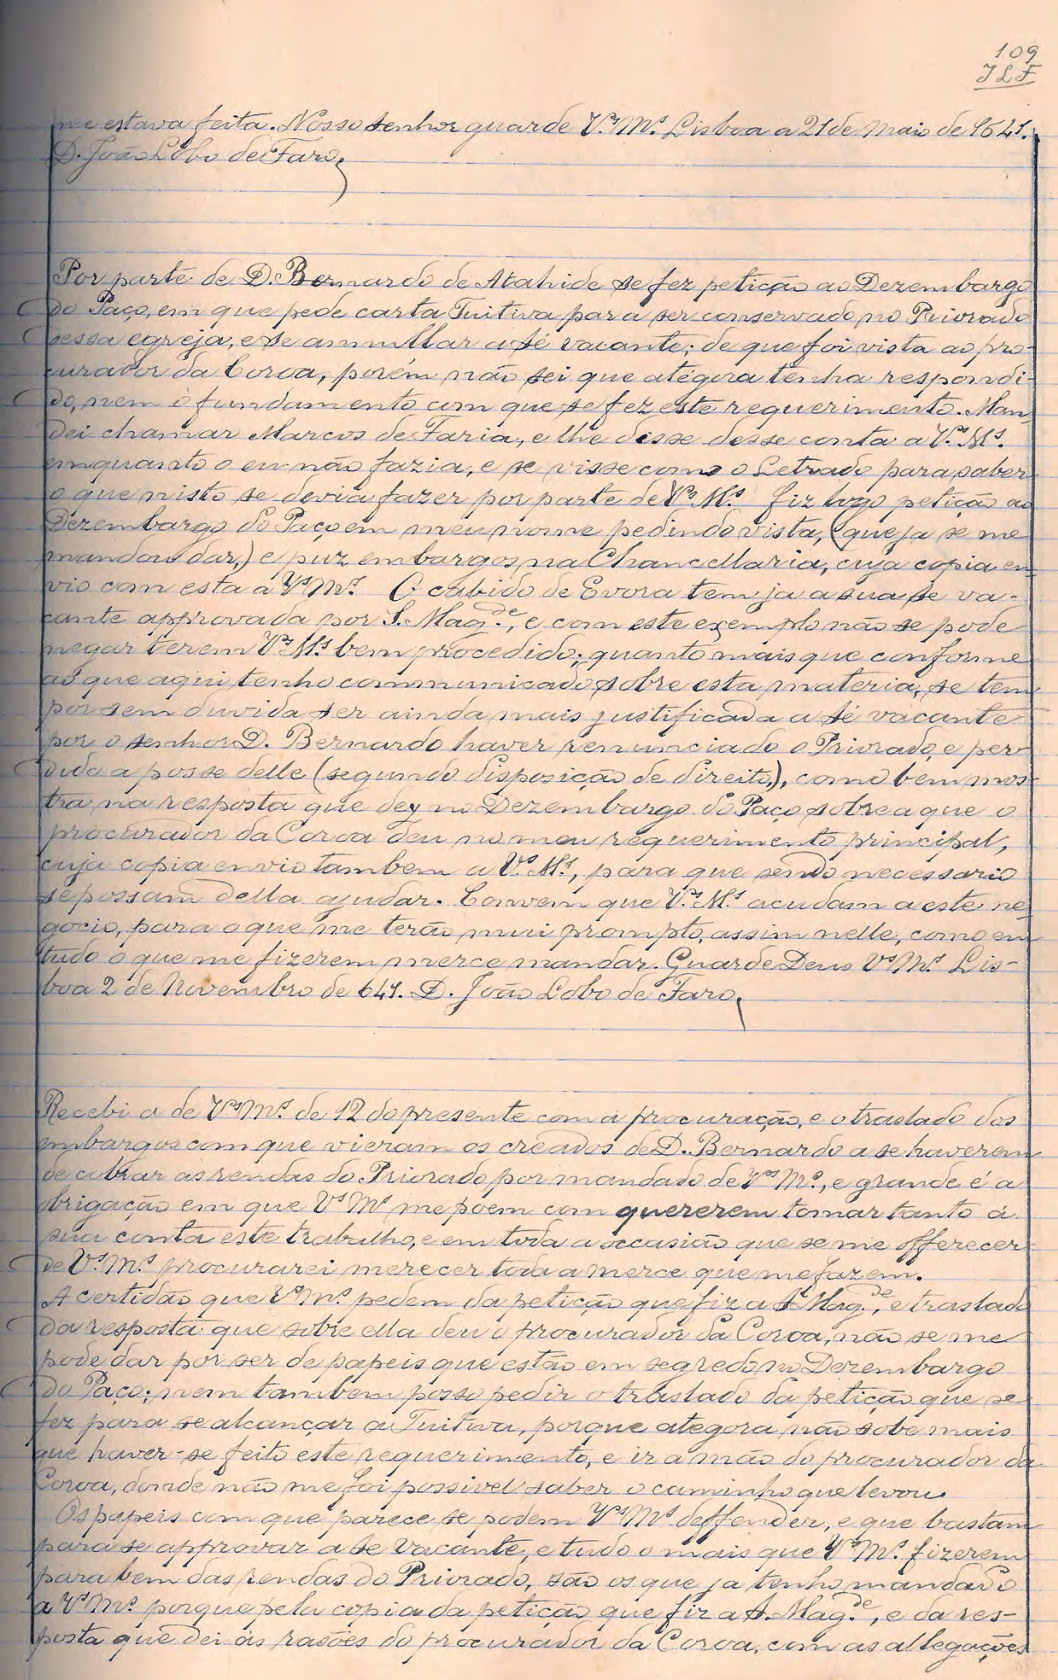 109
JLF
me estava feita. Nosso senhor guarde V.ˢ M.ˢ Lisboa a 21 de Maio de 1641.
D. João Lobo de Faro.
Por parte de D. Bernardo de Atahide se fez petição ao Dezembargo
do Paço, em que pede carta Tuitiva para ser conservado no Priorado
dessa egreja, e se annullar a sé vacante; de que foi vista ao pro-
curador da Coroa, porém não sei que atégora tenha respondi-
do, nem o fundamento com que se fez este requerimento. Man-
dei chamar Marcos de Faria, e lhe disse desse conta a V.ˢ M.ˢ
emquanto o eu não fazia, e se visse com o Letrado para saber
o que nisto se devia fazer por parte de V.ˢ M.ˢ fiz logo petição ao
Dezembargo do Paço em meu nome pedindo vista, (que ja se me
mandou dar,) e puz embargos na Chancellaria, cuja copia en-
vio com esta a V.ˢ M.ˢ O cabido de Evora tem ja a sua sé va-
cante approvada por S. Mag.ᵈᵉ, e com este exemplo não se pode
negar terem V.ˢ M.ˢ bem procedido; quanto mais que conforme
ao que aqui tenho communicado sobre esta materia, se tem
por sem duvida ser ainda mais justificada a sé vacante
por o senhor D. Bernardo haver renunciado o Priorado, e per-
dido a posse delle (segundo disposição de direito,), como bem mos-
tra na resposta que dey no Dezembargo do Paço sobre a que o
procurador da Coroa deu no meu requerimento principal,
cuja copia envio tambem a V.ˢ M.ˢ, para que sendo necessario
se possam della ajudar. Convem que V.ˢ M.ˢ acudam a este ne-
gocio, para o que me terão mui prompto, assim nelle, como em
tudo o que me fizerem merce mandar. Guarde Deus V.ˢ M.ˢ Lis-
boa 2 de Novembro de 641. D. João Lobo de Faro.
Recebi a de V.ˢ M.ˢ de 12 do presente com a procuração, e o traslado dos
embargos com que vieram os creados de D. Bernardo a se haverem
de cobrar as rendas do Priorado por mandado de V.ˢ M.ˢ, e grande é a
obrigação em que V.ˢ M.ˢ me poem com quererem tomar tanto á
sua conta este trabalho, e em toda a occasião que se me offerecer
de V.ˢ M.ˢ procurarei merecer toda a merce que me fazem.
A certidão que V.ˢ M.ˢ pedem da petição que fiz a S. Mag.ᵈᵉ, e traslado
da resposta que sobre ella deu o procurador da Coroa, não se me
pode dar por ser de papeis que estão em segredo no Dezembargo
do Paço; nem tambem posso pedir o traslado da petição que se
fez para se alcançar a Tuitiva, porque ategora não sobe mais
que haver-se feito este requerimento, e ir a mão do procurador da
Coroa, donde não me foi possivel saber o caminho que levou.
Os papeis com que parece se podem V.ˢ M.ˢ deffender, e que bastam
para se approvar a sé vacante, e tudo o mais que V.ˢ M.ˢ fizerem
para bem das rendas do Priorado, são os que ja tenho mandado
a V.ˢ M.ˢ porque pela copia da petição que fiz a S. Mag.ᵈᵉ, e da res-
posta que dei ás rasões do procurador da Coroa, com as allegações